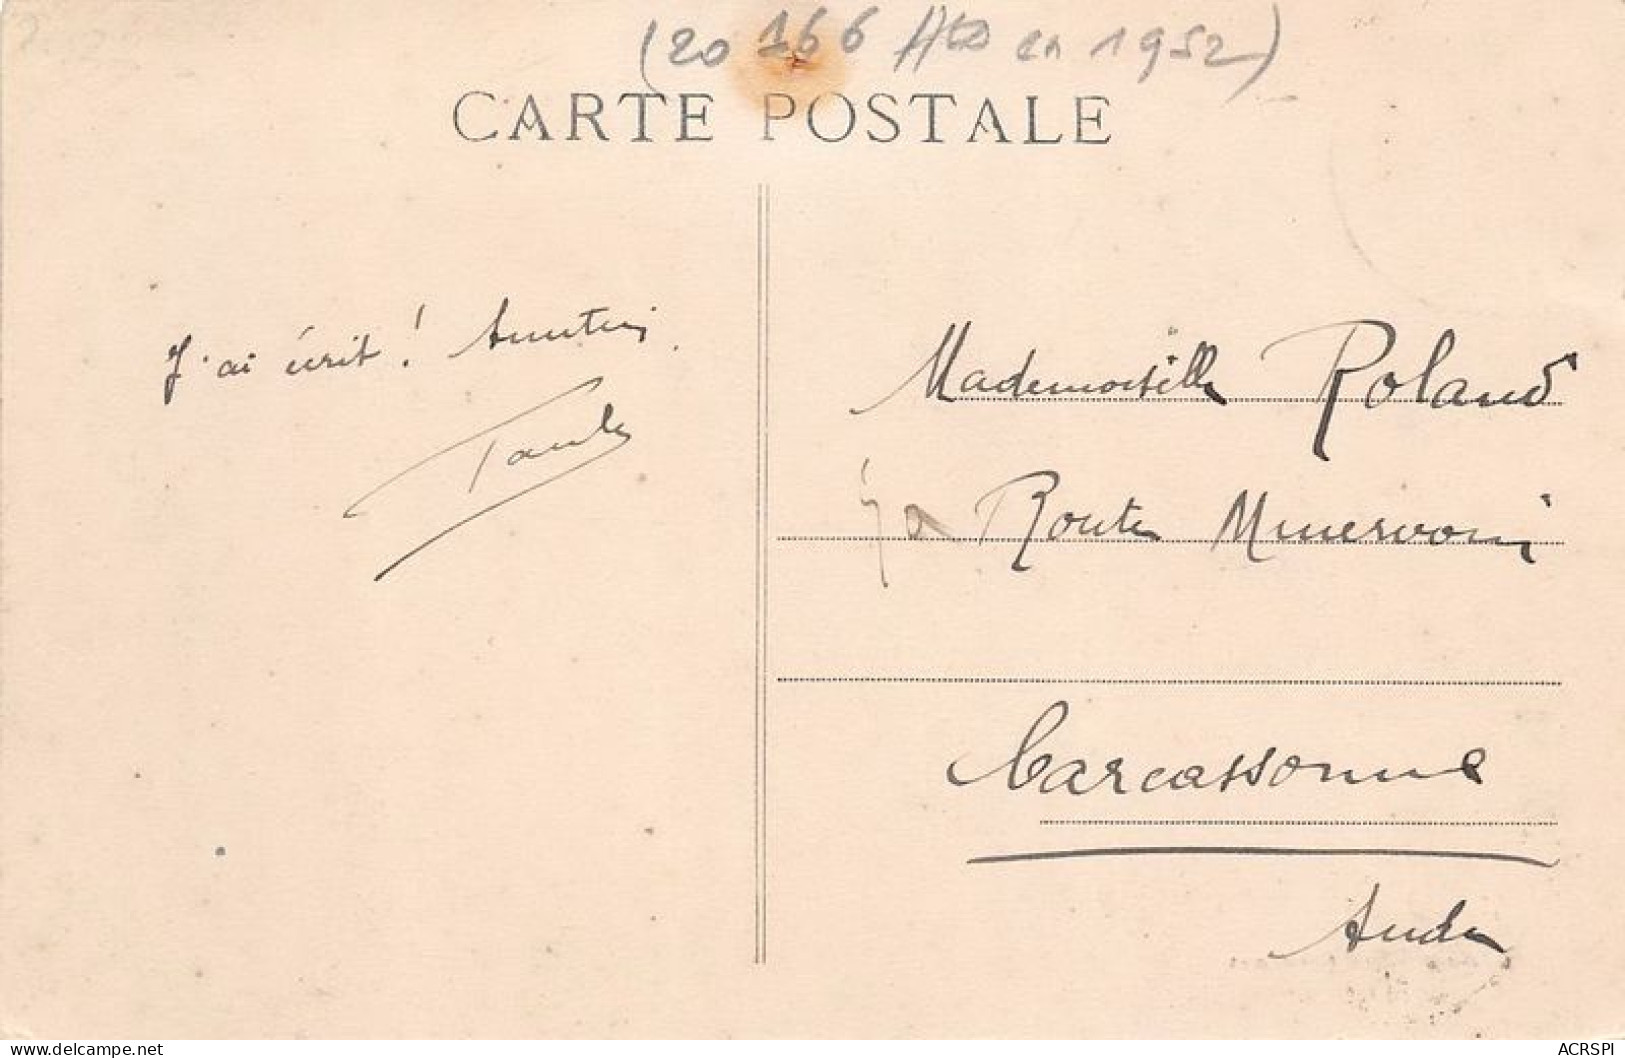 (20 166 Hts en 1952)
CARTE POSTALE
J'ai écrit ! Amitiés.
Mademoiselle Roland
Route Minervois
Carcassonne
Aude
ACRSPI